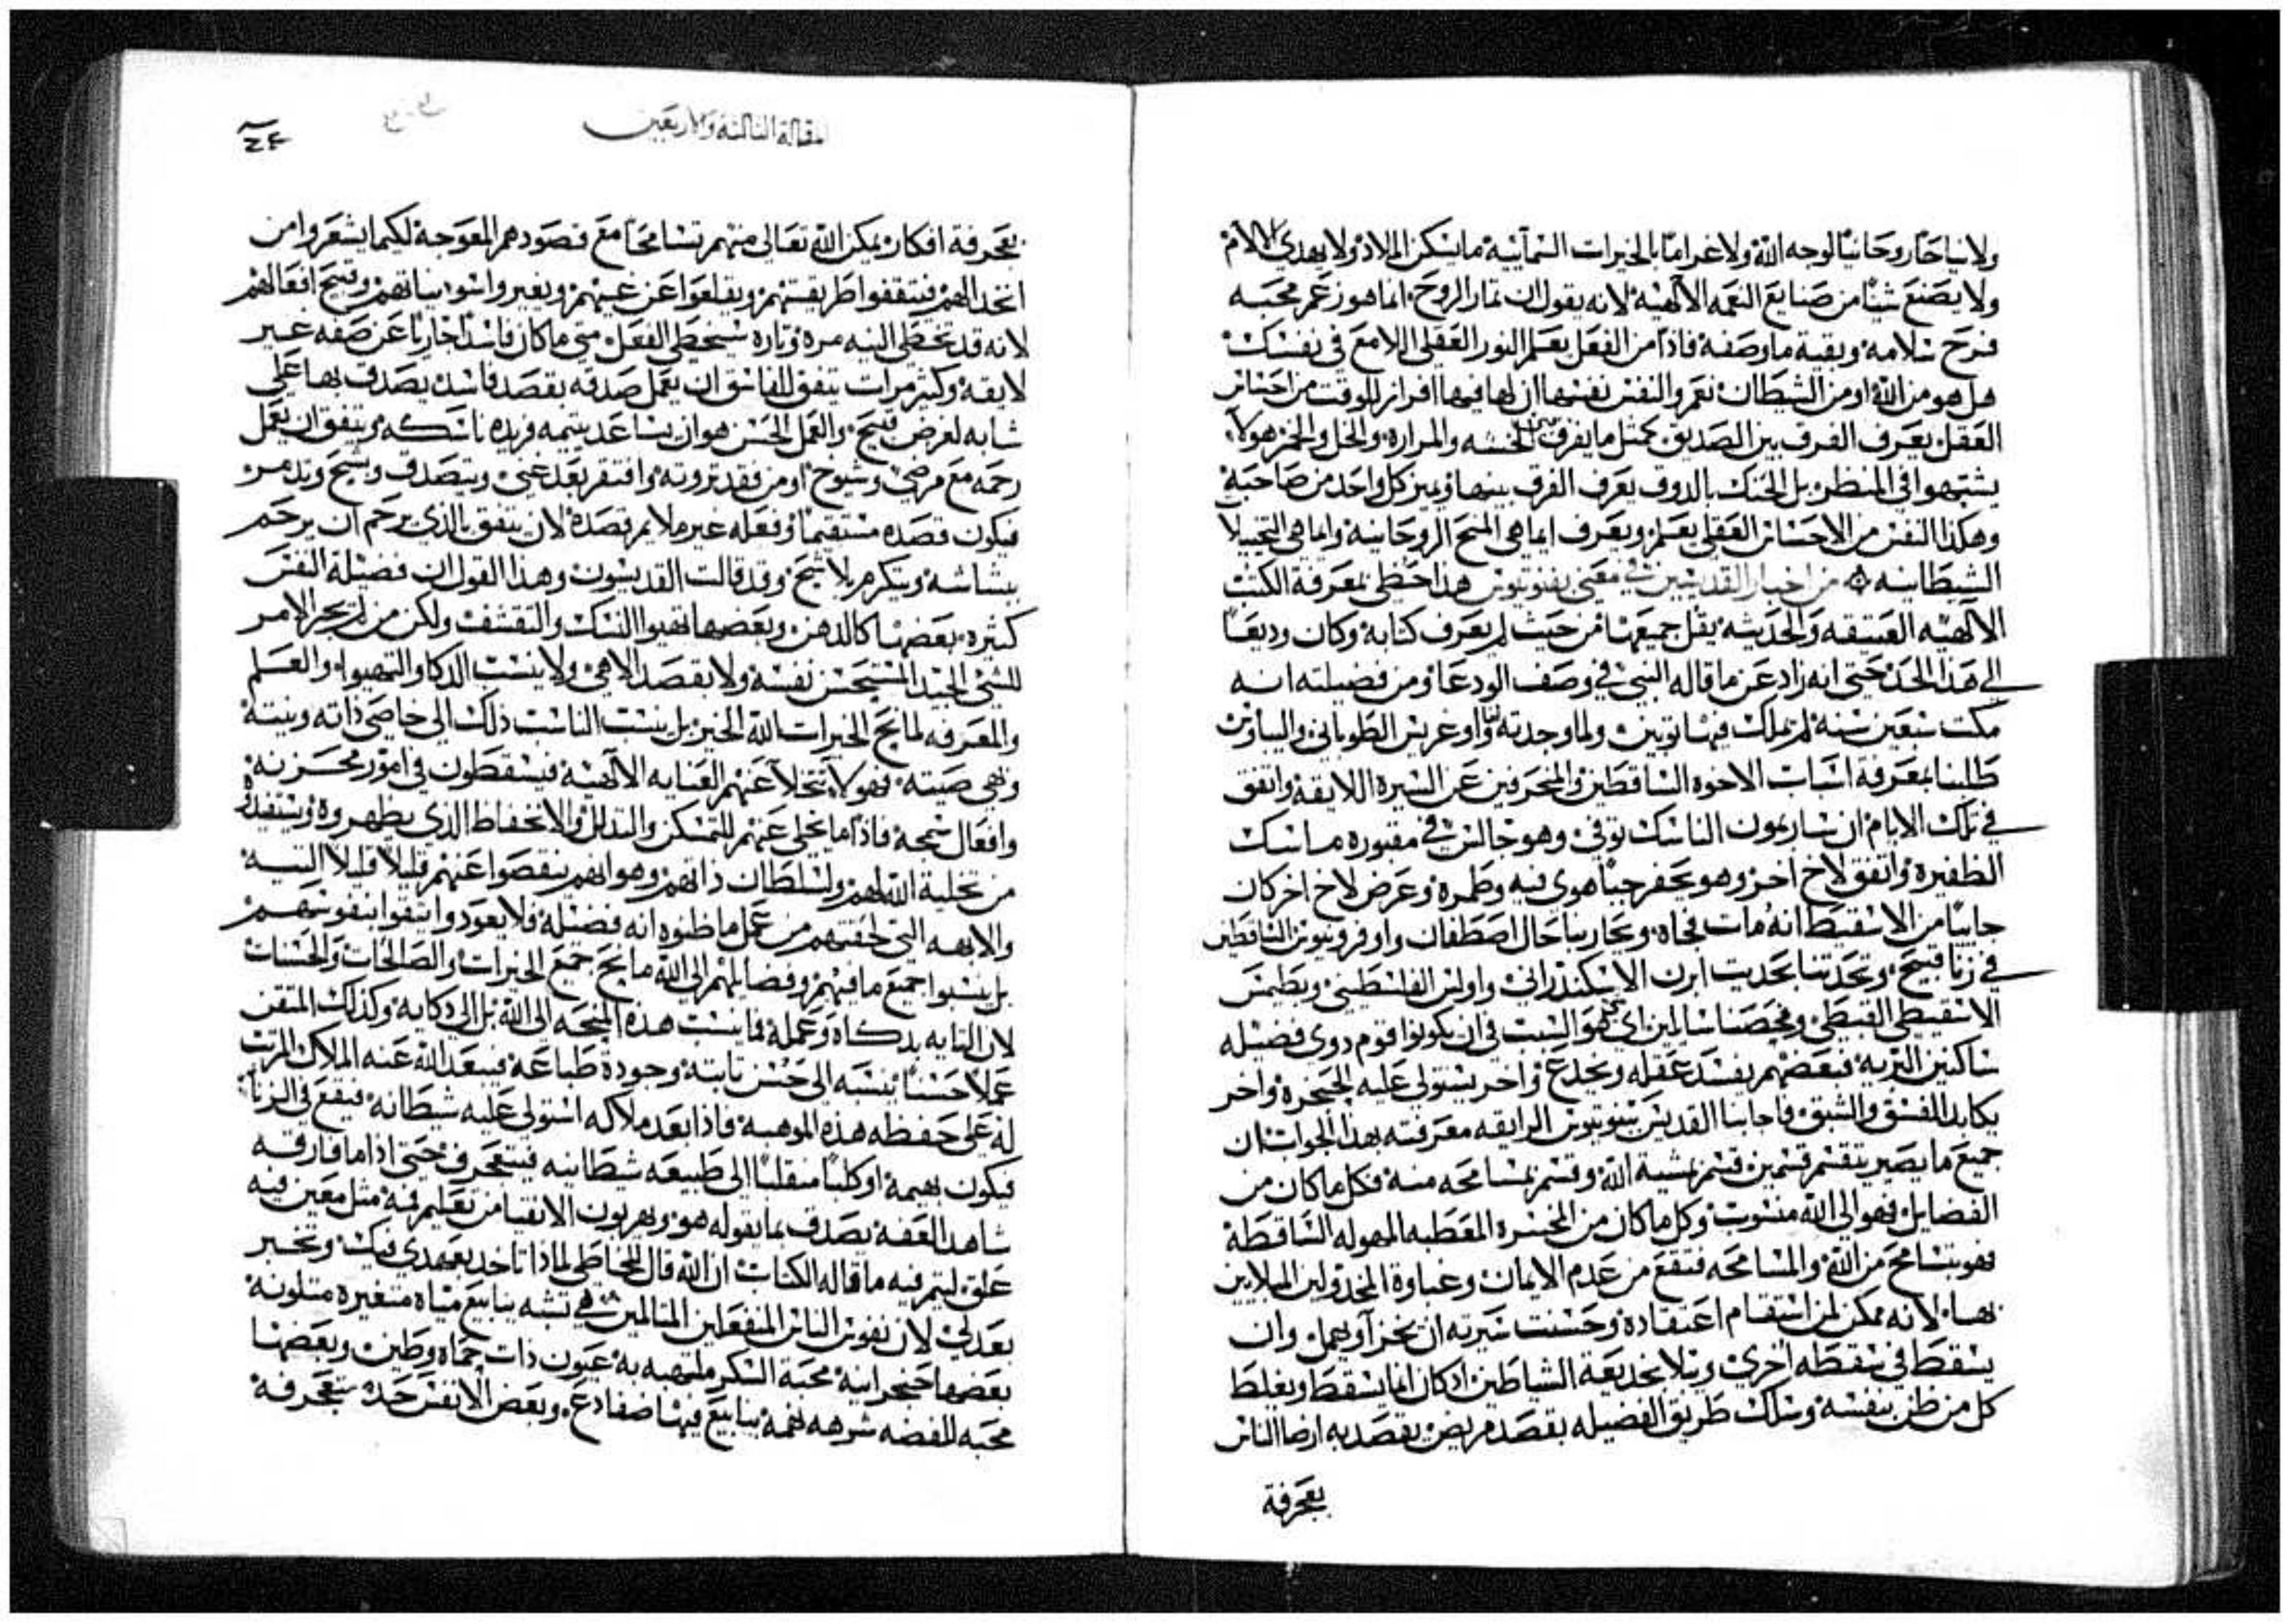 ولانياحًا روحانيًا لوجه الله ولا غرامًا بالخيرات السمآييه ما يسكن الملاذ ولا يهدي الالام
ولا يصنع شيئًا من صنايع النعمه الالهيه لانه يقول ان ثمار الروح انما هو زعم محبه
فرح سلامه وبقية ما وصفه فاذًا من الفعل يعلم النور العقلي اللامع في نفسك
هل هو من الله او من الشيطان نعم والنفس نفسها ان لها فيها افراز للوقت من احساس
العقل يعرف الفرف بين الصديق كمثل ما يفرف الخسه والمراره والخل والخمر هولا
يشتبهوا في المنظر بل الحنك بالذوق يعرف الفرق بينها ويميز كل واحد من صاحبه
وهكذا النفس من الاحساس العقلي يعلم ويعرف ايما هي المنح الروحانيه وايما هي التخيلا
الشيطانيه من اخبار القديسين في معنى بفنوتيوس هذا حظي بمعرفة الكتب
الالهيه العتيقه والحديثه يقل جميعها من حيث لم يعرف كتابه وكان وديعًا
الي هذا الحد حتى انه زاد عن ما قاله النبي في وصف الودعا ومن فضيلته انه
مكت سبعين سنه لم يملك فيها توبين ولما وجدته انا واوغريس الطوباني والباوس
طلبنا بمعرفة اسباب الاخوه الساقطين والمنحرفين عن السيره اللايقه واتفق
في تلك الايام ان ساريمون الناسك توفي وهو جالس في مقبوره ماسك
الظفيره واتفق لاخ اخر وهو يحفر جبًا هوي فيه وطمره وعرض لاخ اخر كان
جاييًا من الاسقيط انه مات فجاه وتجارينا حال اصطفان واوفرونيوس الساقطين
في زنا قبيح وتحدثنا بحديت ايرن الاسكندراني واولس الفلسطيني وبطليمس
الاسقيطي القبطي وفحصنا سالين اي هو السبب في ان يكونوا قوم دوي فضيله
ساكنين البريه فبعضهم يفسد عقله ويخدع واخر يستولي عليه الحنجره واخر
يكابد الفسق والشبق فاجابنا القديس بينوتيوس الرايقه معرفته بهذا الجواب ان
جميع ما يصير ينقسم قسمين قسم بمشية الله وقسم بمسامحه منه فكل ما كان من
الفضايل فهو الي الله منسوب وكل ما كان من المخسره المعطبه المهوله الساقطة
فهو بتسامح من الله والمسامحه فتقع من عدم الايمان وغباوة المخدولين المبلايين
بها لانه ممكن لمن استقام اعتقاده وحسنت سيرته ان يخزا او يعمل وان
يسقط في سقطه اخري ويبلا بخديعة الشياطين اذ كان انما يسقط ويغلط
كل من ظن بنفسه وسلك طريق الفضيله بقصد مريض يقصد به ارضا الناس
بعجرفة
المقالة الثالثة والاربعين
٤٢
بعجرفة افكار يمكن الله تعالي منهم تسامحًا مع قصودهم المعوجه لكيما يشعروا من
اتخدالهم فيتقفوا طريقتهم ويقلعوا عن غيهم ويغيروا اسوا نياتهم وقبيح افعالهم
لانه قد تخطي النيه مره وتاره سيخطي الفعل متى ما كان فاسدًا خاريًا عن صفه غير
لايقه وكثير مرات يتفق للفاسق ان يعمل صدقه بقصد فاسد يصدق بها علي
شابه لغرض قبيح والعمل الحسن هو ان يساعد يتيمه فريده ناسكه ويتفق ان يعمل
رحمه مع مرضي وشيوخ او من فقد ثروته وافتقر بعد غني ويتصدق ويشح ويتدمر
فيكون قصده مستقيمًا وفعله غير ملايم قصده لان يتفق بالذي يرحم ان يرحم
ببشاشه ويتكرم بلا شح وقد قالت القديسون وهذا القول ان فضيلة النفس
كثيره بعضها كالدهن وبعضها تهيوا النسك والتقشف ولكن من لم يحر الامر
للشي الجيد المستحسن نفسه ولا يقصد الاهي ولا ينسب الدكا والتهيوا والعلم
والمعرفه لمانح الخيرات الله الخير بل ينسب الناسب ذلك الي خاصي ذاته ونيته
وهي صيته فهولا تتخلا عنهم العنايه الالهيه فيسقطون في امور محزنه
وافعال سمجه فاذا ما تخلي عنهم للتمسكن والتدلل والانحفاظ الذي يظهروه ويستفيده
من تخلية الله لهم ولسلطان ذاتهم وهو انهم ينقصوا عنهم قليلًا قليلًا التيه
والابهه التي لحقتهم من عمل ما ظنوه انه فضيله فلا يعودوا ايتقوا بنفوسهم
بل ينسبوا جميع ما فيهم وفضايلهم الي الله مانح جميع الخيرات والصالحات والحسنات
لان التايه بدكاه وعمله فما ينسب هذه المنحه الي الله بل الي دكايه وكذلك المتقن
عملًا حسنًا ينسبه الي حسن ثابته وجودة طباعه فيبعد الله عنه الملاك المرتب
له علي حفظه هذه الموهبه فاذا بعد ملاكه استولي عليه شيطانه فيقع في الزنا
فيكون بهيمه او كلبًا منقلبًا الي طبيعه شيطانيه فيتعجرف حتى اذا ما فارقه
شاهد العفه يصدق بما يقوله هو ويهربون الاتقيا من تعليم فمه مثل معين فيه
علق ليتم فيه ما قاله الكتاب ان الله قال للخاطي لماذا تاخد بعهدي فيك وتخبر
بعدلي لان نفوس الناس المنفعلين المتالمين هي تشبه ينابيع مياه متغيره متلونه
بعضها حنجرانيه محبة السكر ملتهبه به عيون ذات حماه وطين وبعضها
محبه للفضه شرهه نهمه ينابيع فيها ضفادع وبعض الانفس حده بتعجرفه